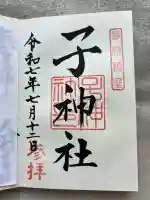 子神社
令和七年七月十二日
参拝